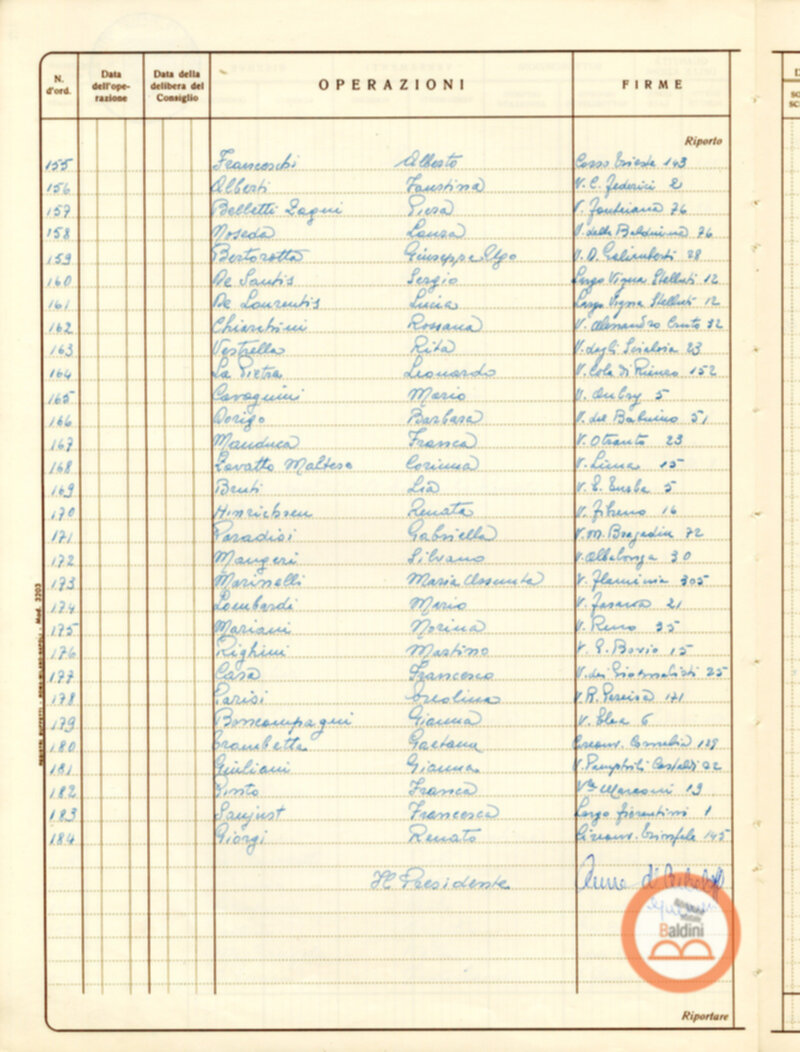 N. d'ord. Data dell'operazione Data della delibera del Consiglio OPERAZIONI FIRME
Riporto
155 Franceschi Alberto Corso Trieste 143
156 Alberti Faustina V. C. Federici 2
157 Belletti Zagni Piera V. Fontiana 76
158 Noseda Laura V. della Balduina 76
159 Bertorotta Giuseppe Ugo V. D. Galimberti 28
160 De Santis Sergio Largo Vigna Stelluti 12
161 De Laurentis Lucia Largo Vigna Stelluti 12
162 Chiaratini Rossana V. Alessandro Cruto 32
163 Vestrella Rita V. degli Scialoia 23
164 La Pietra Leonardo V. Cola di Rienzo 152
165 Cavagnini Mario V. Aubry 5
166 Dorigo Barbara V. del Babuino 51
167 Manduca Franca V. Otranto 23
168 Lovatto Maltese Corinna V. Lima 15
169 Bruti Lia V. E. 5
170 Hinrichsen Renata V. Fibreno 16
171 Paradisi Gabriella V. M. Bragadin 72
172 Mangeri Silvano V. Albalonga 30
173 Marinelli Maria Assunta V. Flaminia 305
174 Lombardi Mario V. Fasana 21
175 Mariani Norina V. Reno 35
176 Righini Martino V. E. Bovio 15
177 Casa Francesco V. dei Giornalisti 25
178 Parisi Ercolina V. R. Pereira 171
179 Boncompagni Gianna V. Elea 6
180 Trambetta Gaetana Circonv. Cornelia 129
181 Giuliani Gianna V. Pamphili Castaldi 22
182 Pinto Franca Vle Marconi 19
183 Sanjust Francesca Largo Fiorentini 1
184 Giorgi Renato Circonv. Trionfale 145
Il Presidente
Baldini
Riportare